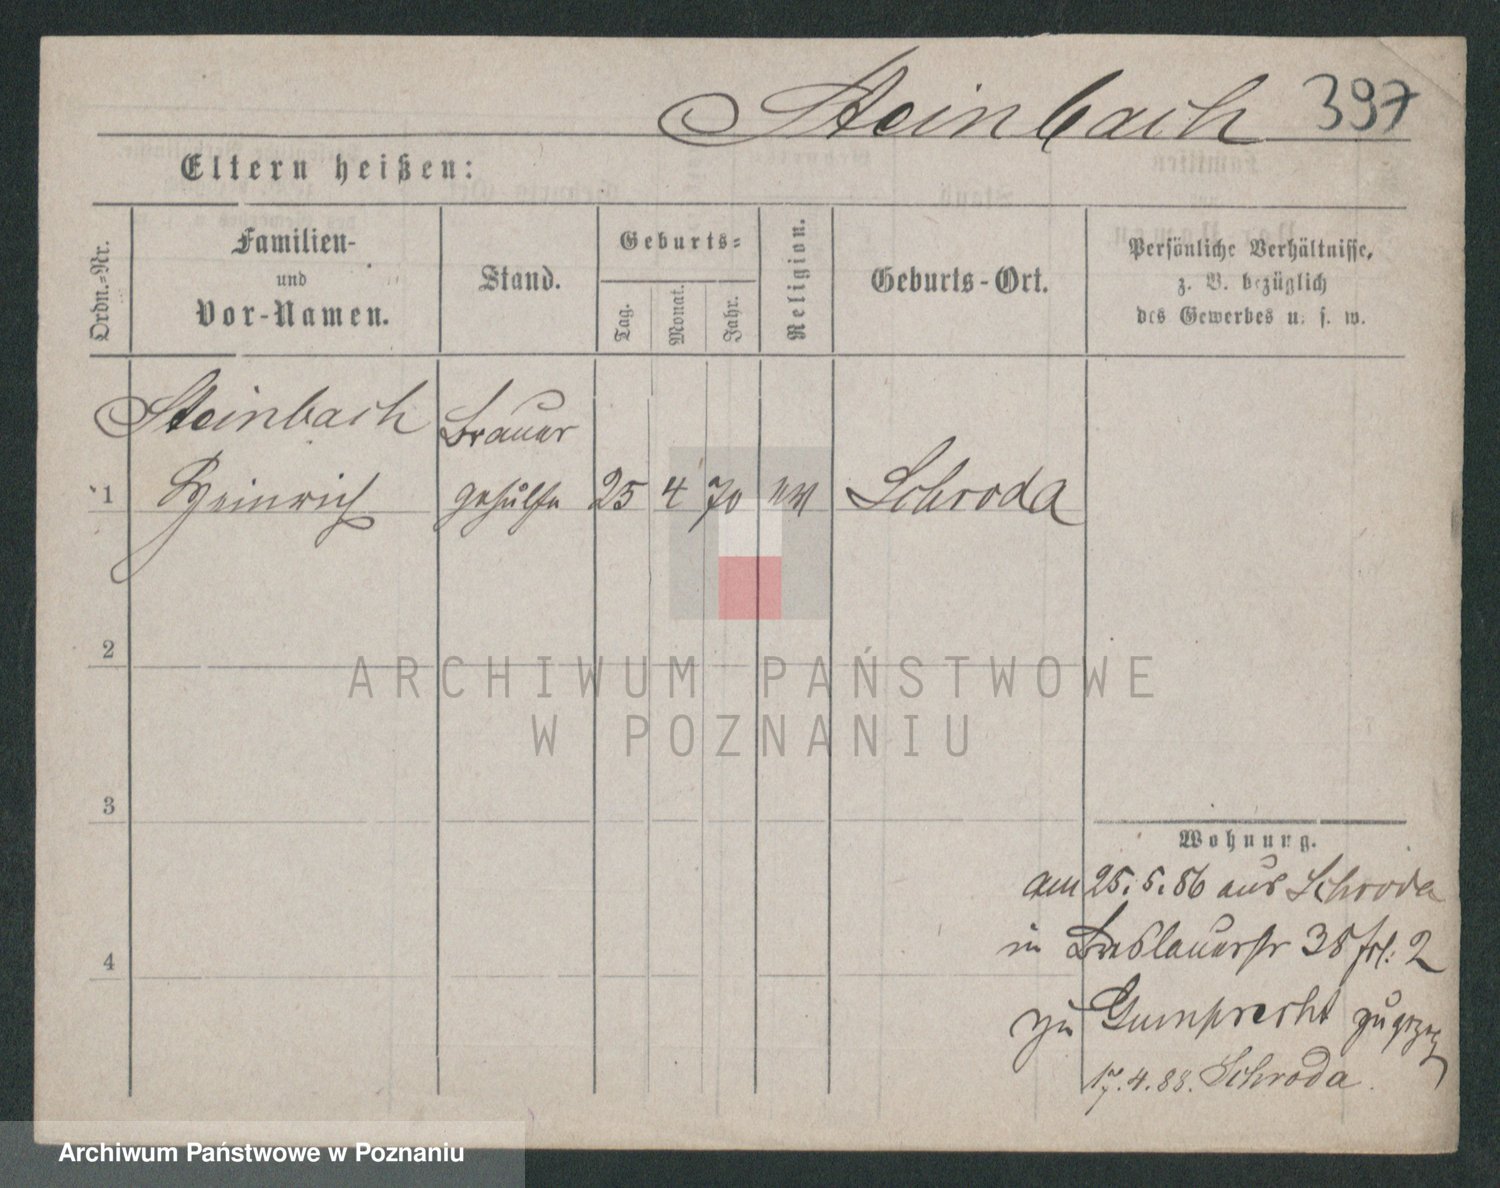 Steinbach 397
Eltern heißen:
Ordn.-Nr.
Familien-
und
Vor-Namen.
Stand.
Geburts-
Tag.
Monat.
Jahr.
Religion.
Geburts-Ort.
Persönliche Verhältnisse,
z. B. bezüglich
des Gewerbes u. s. w.
Steinbach Brauer
1 Heinrich gehülfe 25 4 70 ev Schroda
2
3
4
Wohnung.
am 25.5.86 aus Schroda
in Breslauerstr 38 frl: 2
zu Gumprecht zugezog
17.4.88. Schroda.
ARCHIWUM PAŃSTWOWE
W POZNANIU
Archiwum Państwowe w Poznaniu